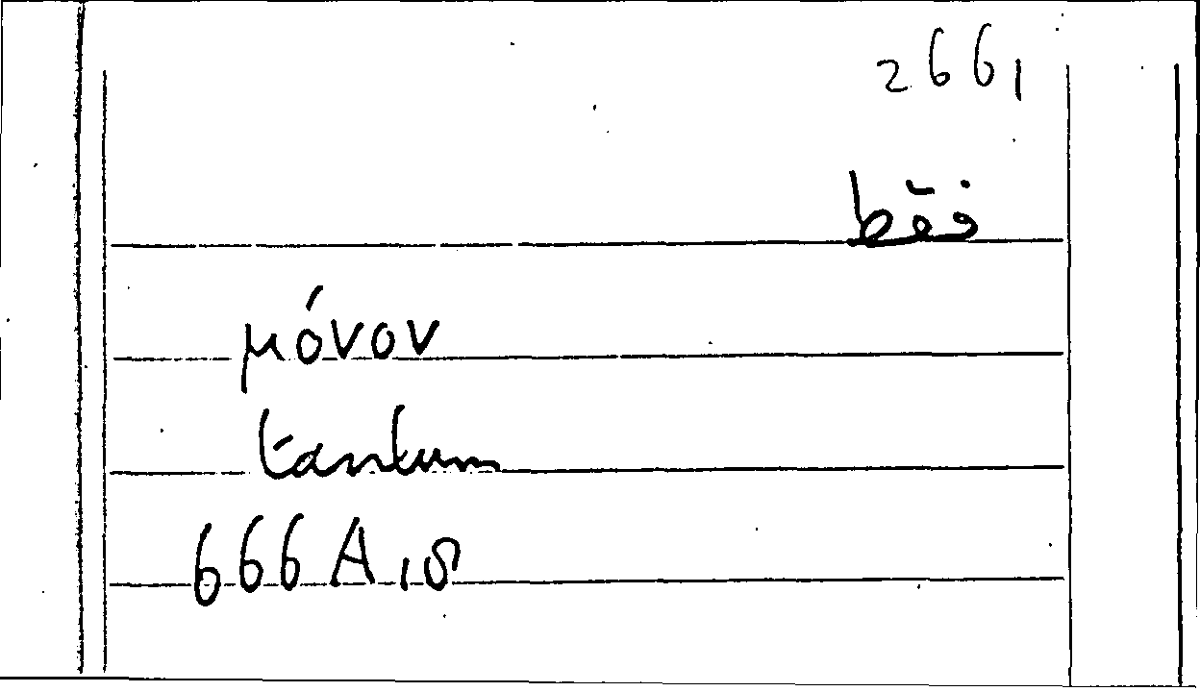 2661
فقط
μόνον
tantum
666 A 18